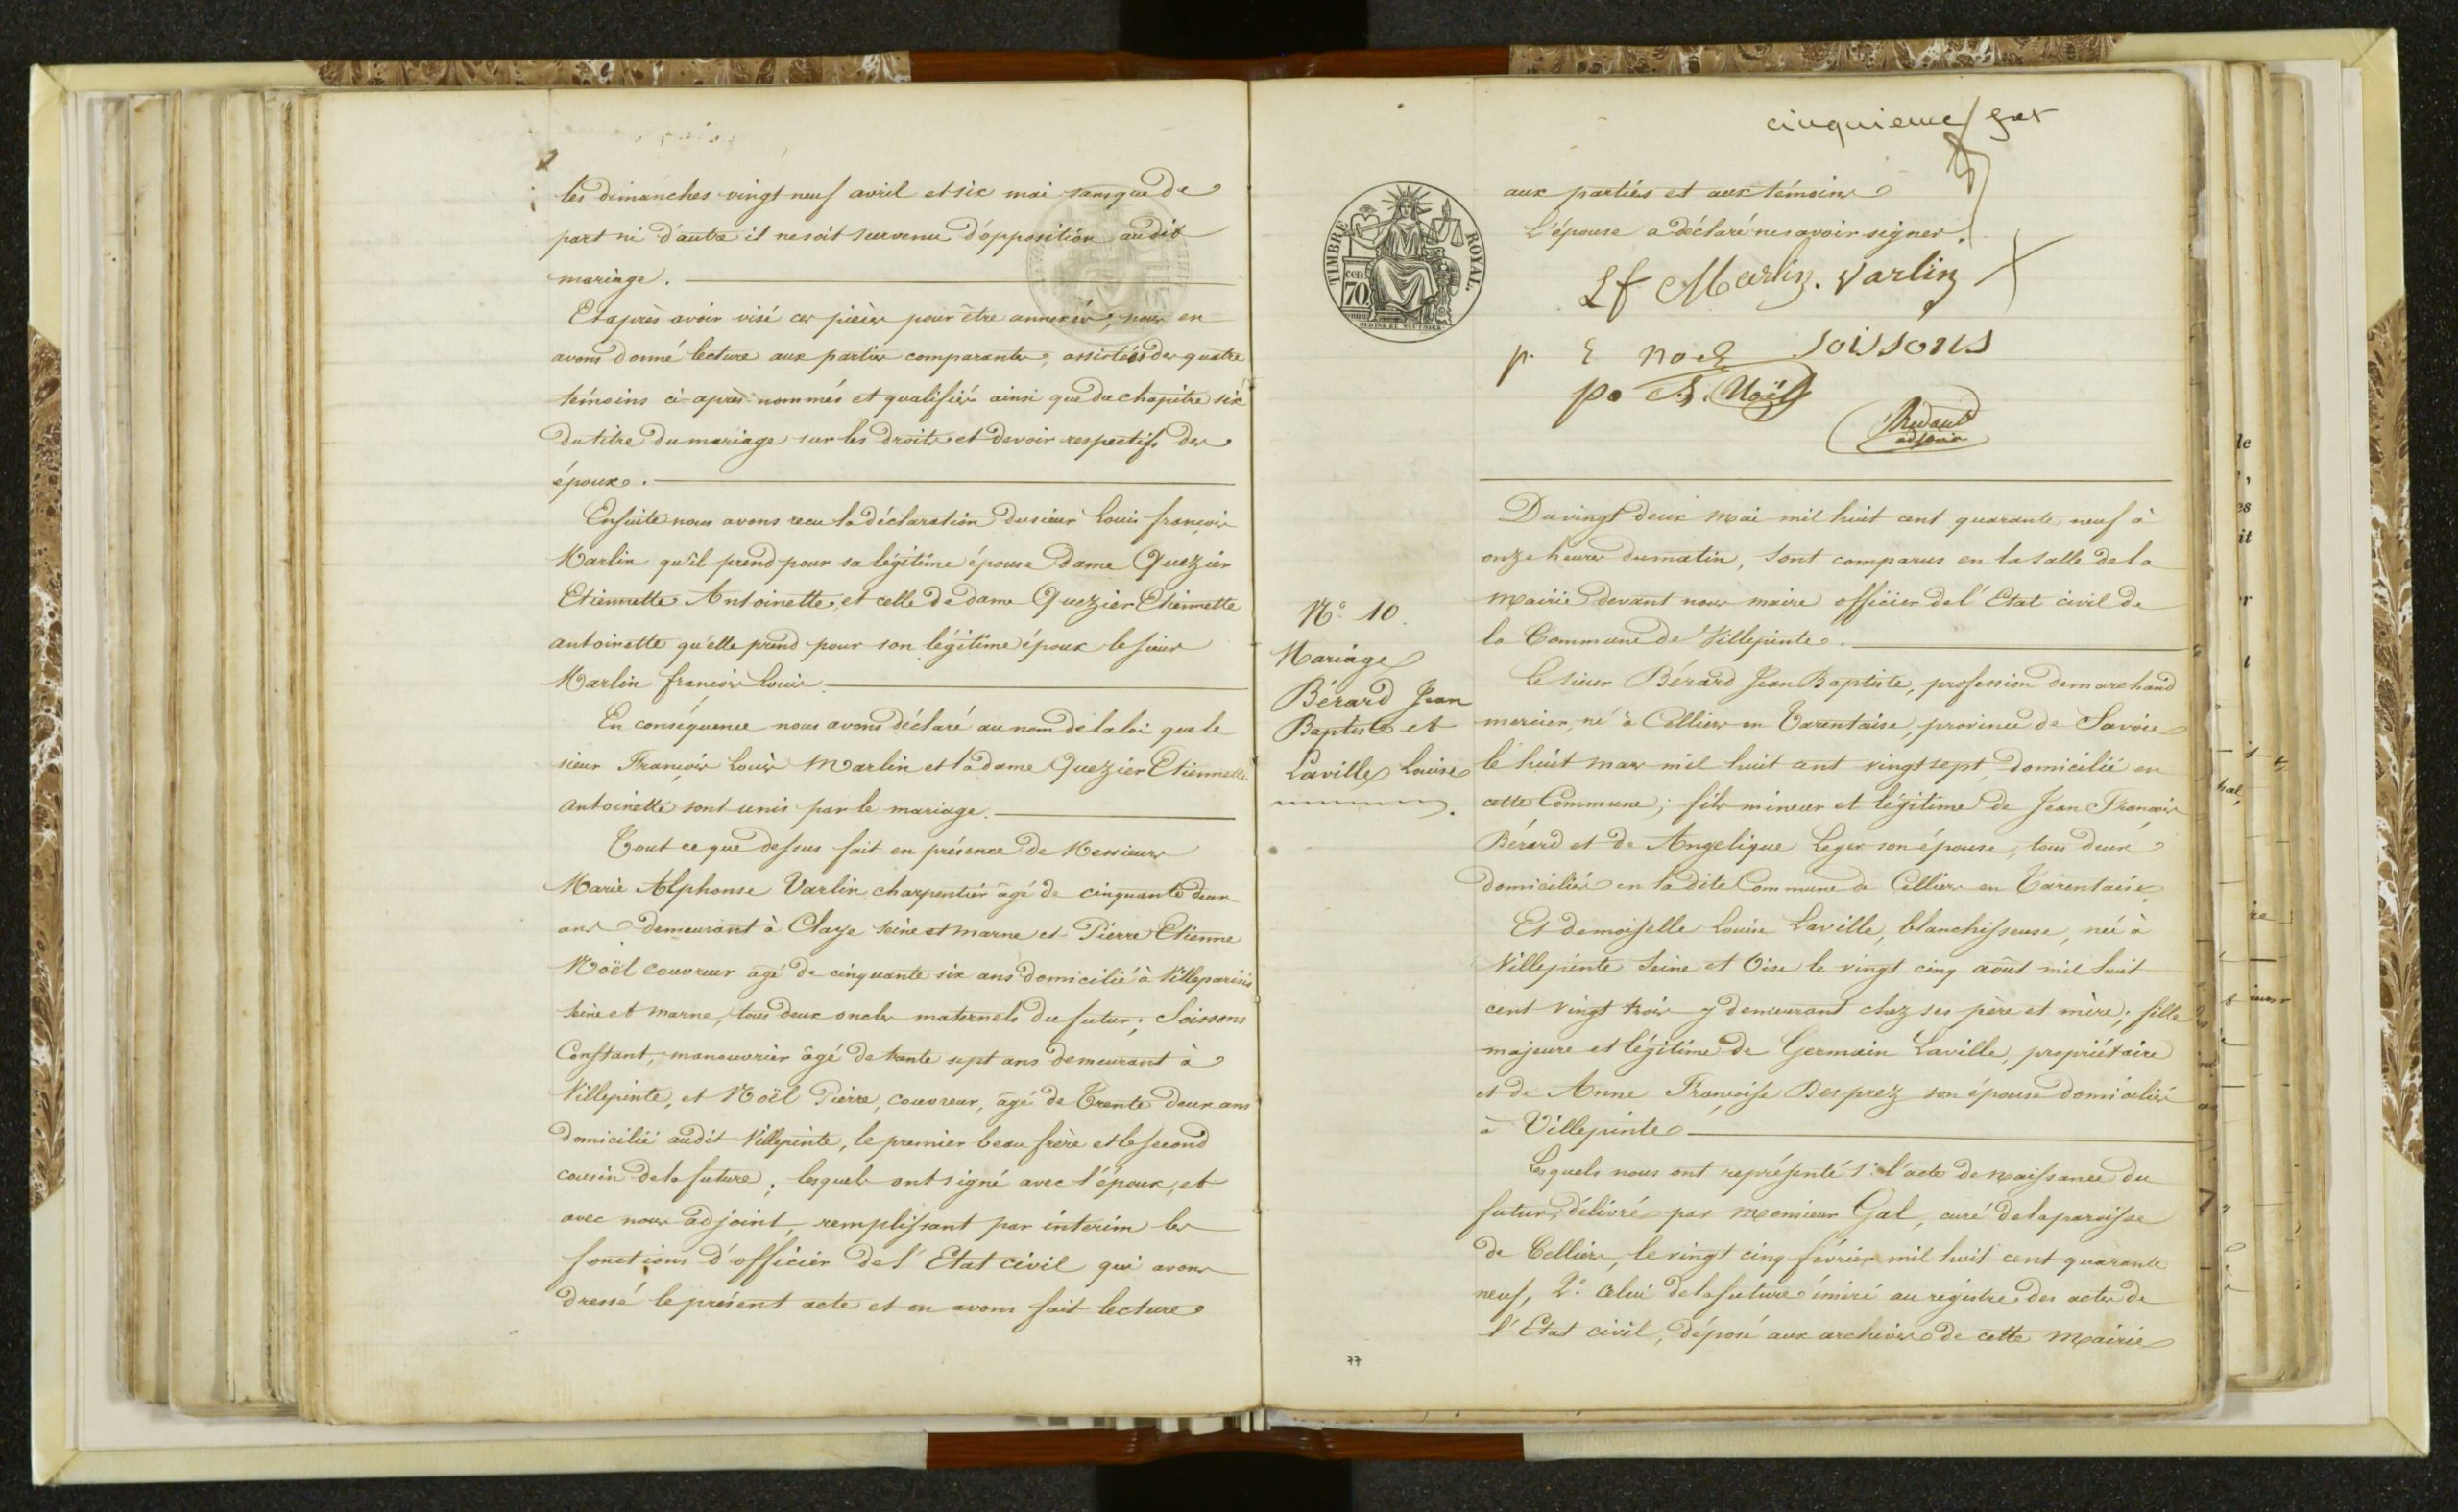 les dimanches vingt neuf avril et six mai sans que de
part ni d'autre il ne soit survenu d'opposition audit
mariage.
Et après avoir visé ces pièces pour être annexées, nous en
avons donné lecture aux parties comparantes, assistées des quatre
témoins ci-après nommés et qualifiés ainsi que du chapitre six
du titre du mariage sur les droits et devoir respectifs des
époux.
Ensuite nous avons recu la déclaration du sieur Louis françois
Marlin qu'il prend pour sa légitime épouse dame Quezier
Etiennette Antoinette, et celle de dame Quezier Etiennette
antoinette qu'elle prend pour son légitime époux le sieur
Marlin françois Louis.
En conséquence nous avons déclaré au nom de la loi que le
sieur François Louis Marlin et la dame Quezier Etiennette
Antoinette sont unis par le mariage.
Tout ce que dessus fait en présence de Messieurs
Marie Alphonse Varlin, charpentier âgé de cinquante deux
ans demeurant à Claye seine et marne et Pierre Etienne
Noël couvreur agé de cinquante six ans domicilié à Villeparisis
seine et marne, tous deux oncles maternels du futur; Soissons
Constant, manouvrier âgé de trente sept ans demeurant à
Villepinte, et Noël Pierre, couvreur, âgé de Trente deux ans
domicilié audit Villepinte, le premier beau frère et le second
cousin de la future; lesquels ont signé avec l'époux, et
avec nous adjoint, remplissant par interim les
fonctions d'officier de l'Etat civil qui avons
dressé le présent acte et en avons fait lecture
cinquieme
aux parties et aux témoins
L'épouse a déclaré ne savoir signer.
TIMBRE ROYAL.
cen 70
L f Marlin. Varlin
p. E noel Soissons
po A. Noël
adjoint
Du vingt deux mai mil huit cent quarante neuf à
onze heures du matin, sont comparus en la salle de la
mairie devant nous maire officier de l'Etat civil de
la Commune de Villepinte.
N.º 10.
Mariage
Bérard Jean
Baptiste et
Laville Louise
Le sieur Bérard Jean Baptiste, profession de marchand
mercier, né à Celliers en Tarentaise, province de Savoie
le huit mars mil huit cent vingt sept, domicilié en
cette Commune; fils mineur et légitime de Jean François
Bérard et de Angelique Leger son épouse, tous deux
domiciliés en ladite Commune de Celliers en Tarentaise.
Et demoiselle Louise Laville, blanchisseuse, née à
Villepinte Seine et Oise le vingt cinq août mil huit
cent vingt trois y demeurant chez ses père et mère; fille
majeure et légitime de Germain Laville, propriétaire
et de Anne Françoise Desprez son épouse domiciliés
à Villepinte
Lesquels nous ont représenté 1º l'acte de naissance du
futur, délivré par Monsieur Gal, curé de la paroisse
de Celliers, le vingt cinq février mil huit cent quarante
neuf, 2º celui de la future inséré au régistre des actes de
l'Etat civil, déposé aux archives de cette Mairie
77